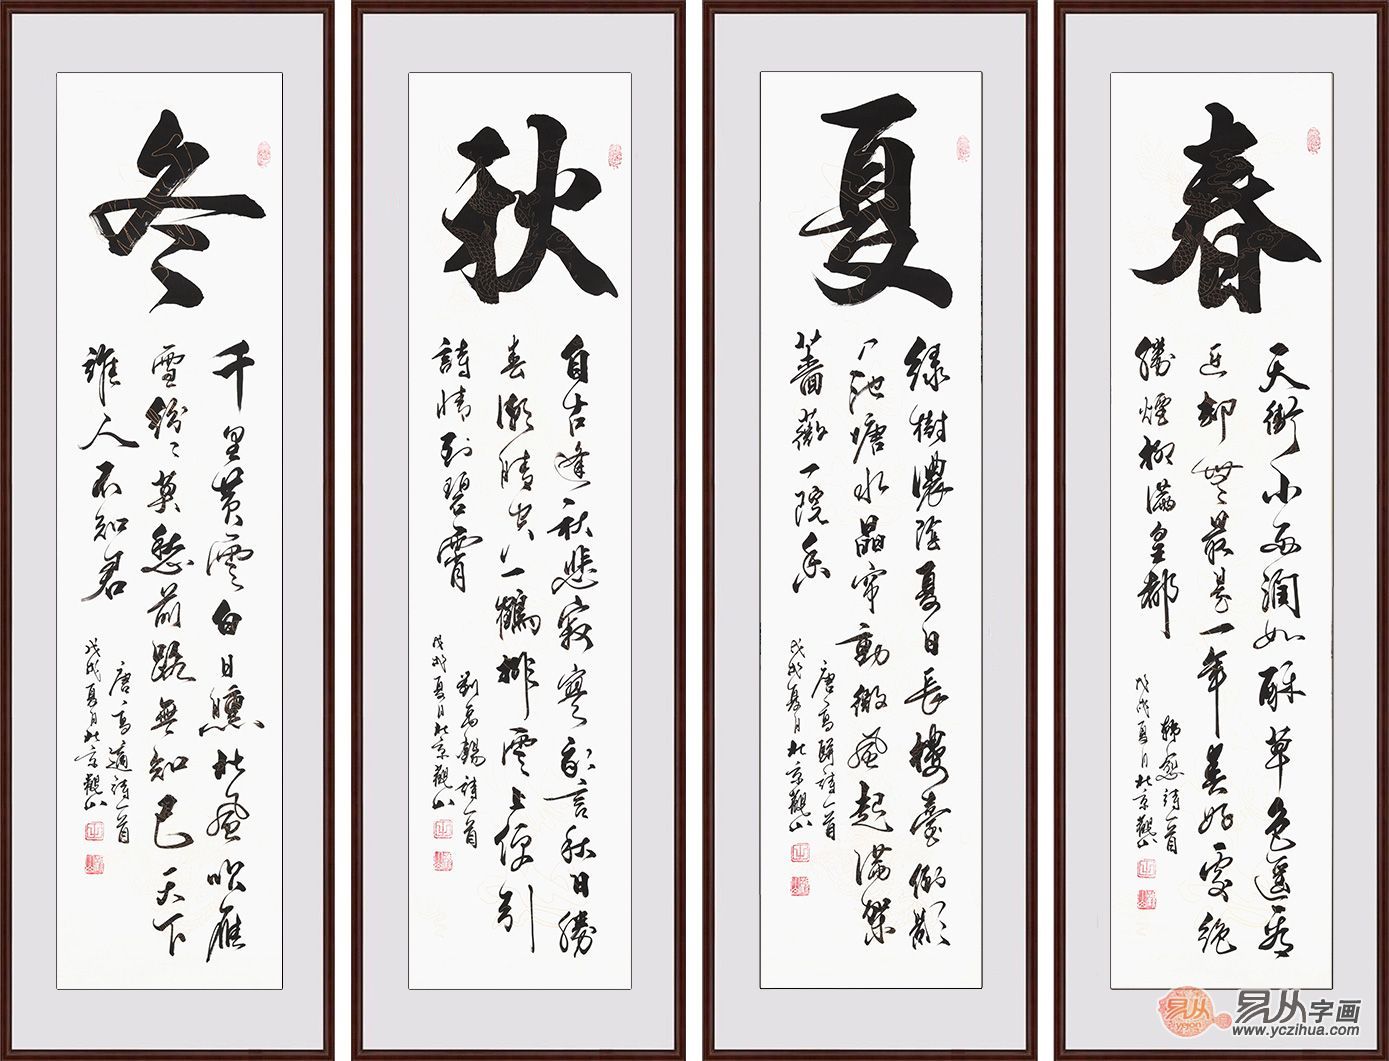 春
天街小雨潤如酥草色遥看
近却無最是一年美好處絶
勝煙柳滿皇都
韓愈詩一首
戊戌夏月北京觀山
夏
綠樹濃陰夏日長樓臺倒影
入池塘水晶帘動微風起滿架
薔薇一院香
唐高駢詩一首
戊戌夏月北京觀山
秋
自古逢秋悲寂寥我言秋日勝
春潮晴空一鶴排雲上便引
詩情到碧霄
劉禹錫詩一首
戊戌夏月北京觀山
冬
千里黄雲白日曛北風吹雁
雪紛〻莫愁前路無知己天下
誰人不知君
唐高適詩一首
戊戌夏月北京觀山
易从
yicong
易从字画
www.yczihua.com